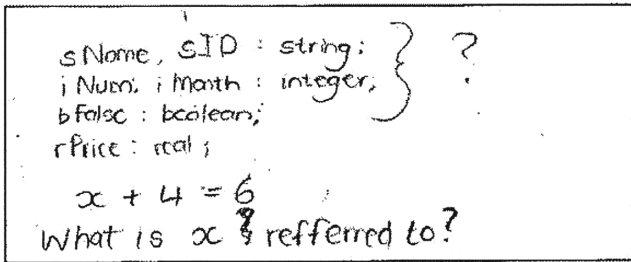 sName, sID : string; ?
iNum, iMonth : integer;
bFalse : boolean;
rPrice : real;
x + 4 = 6
What is x ? refferred to?